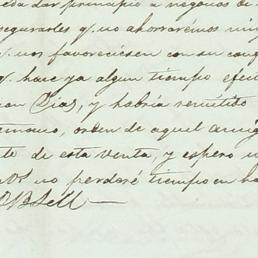 dar principio a negocios de
segurarles q. no ahorraremos
q. nos favoreciesen con su
q. hace ya algun tiempo
Dias, y habria remitido
orden de aquel
te de esta venta, y espero
no perderé tiempo en